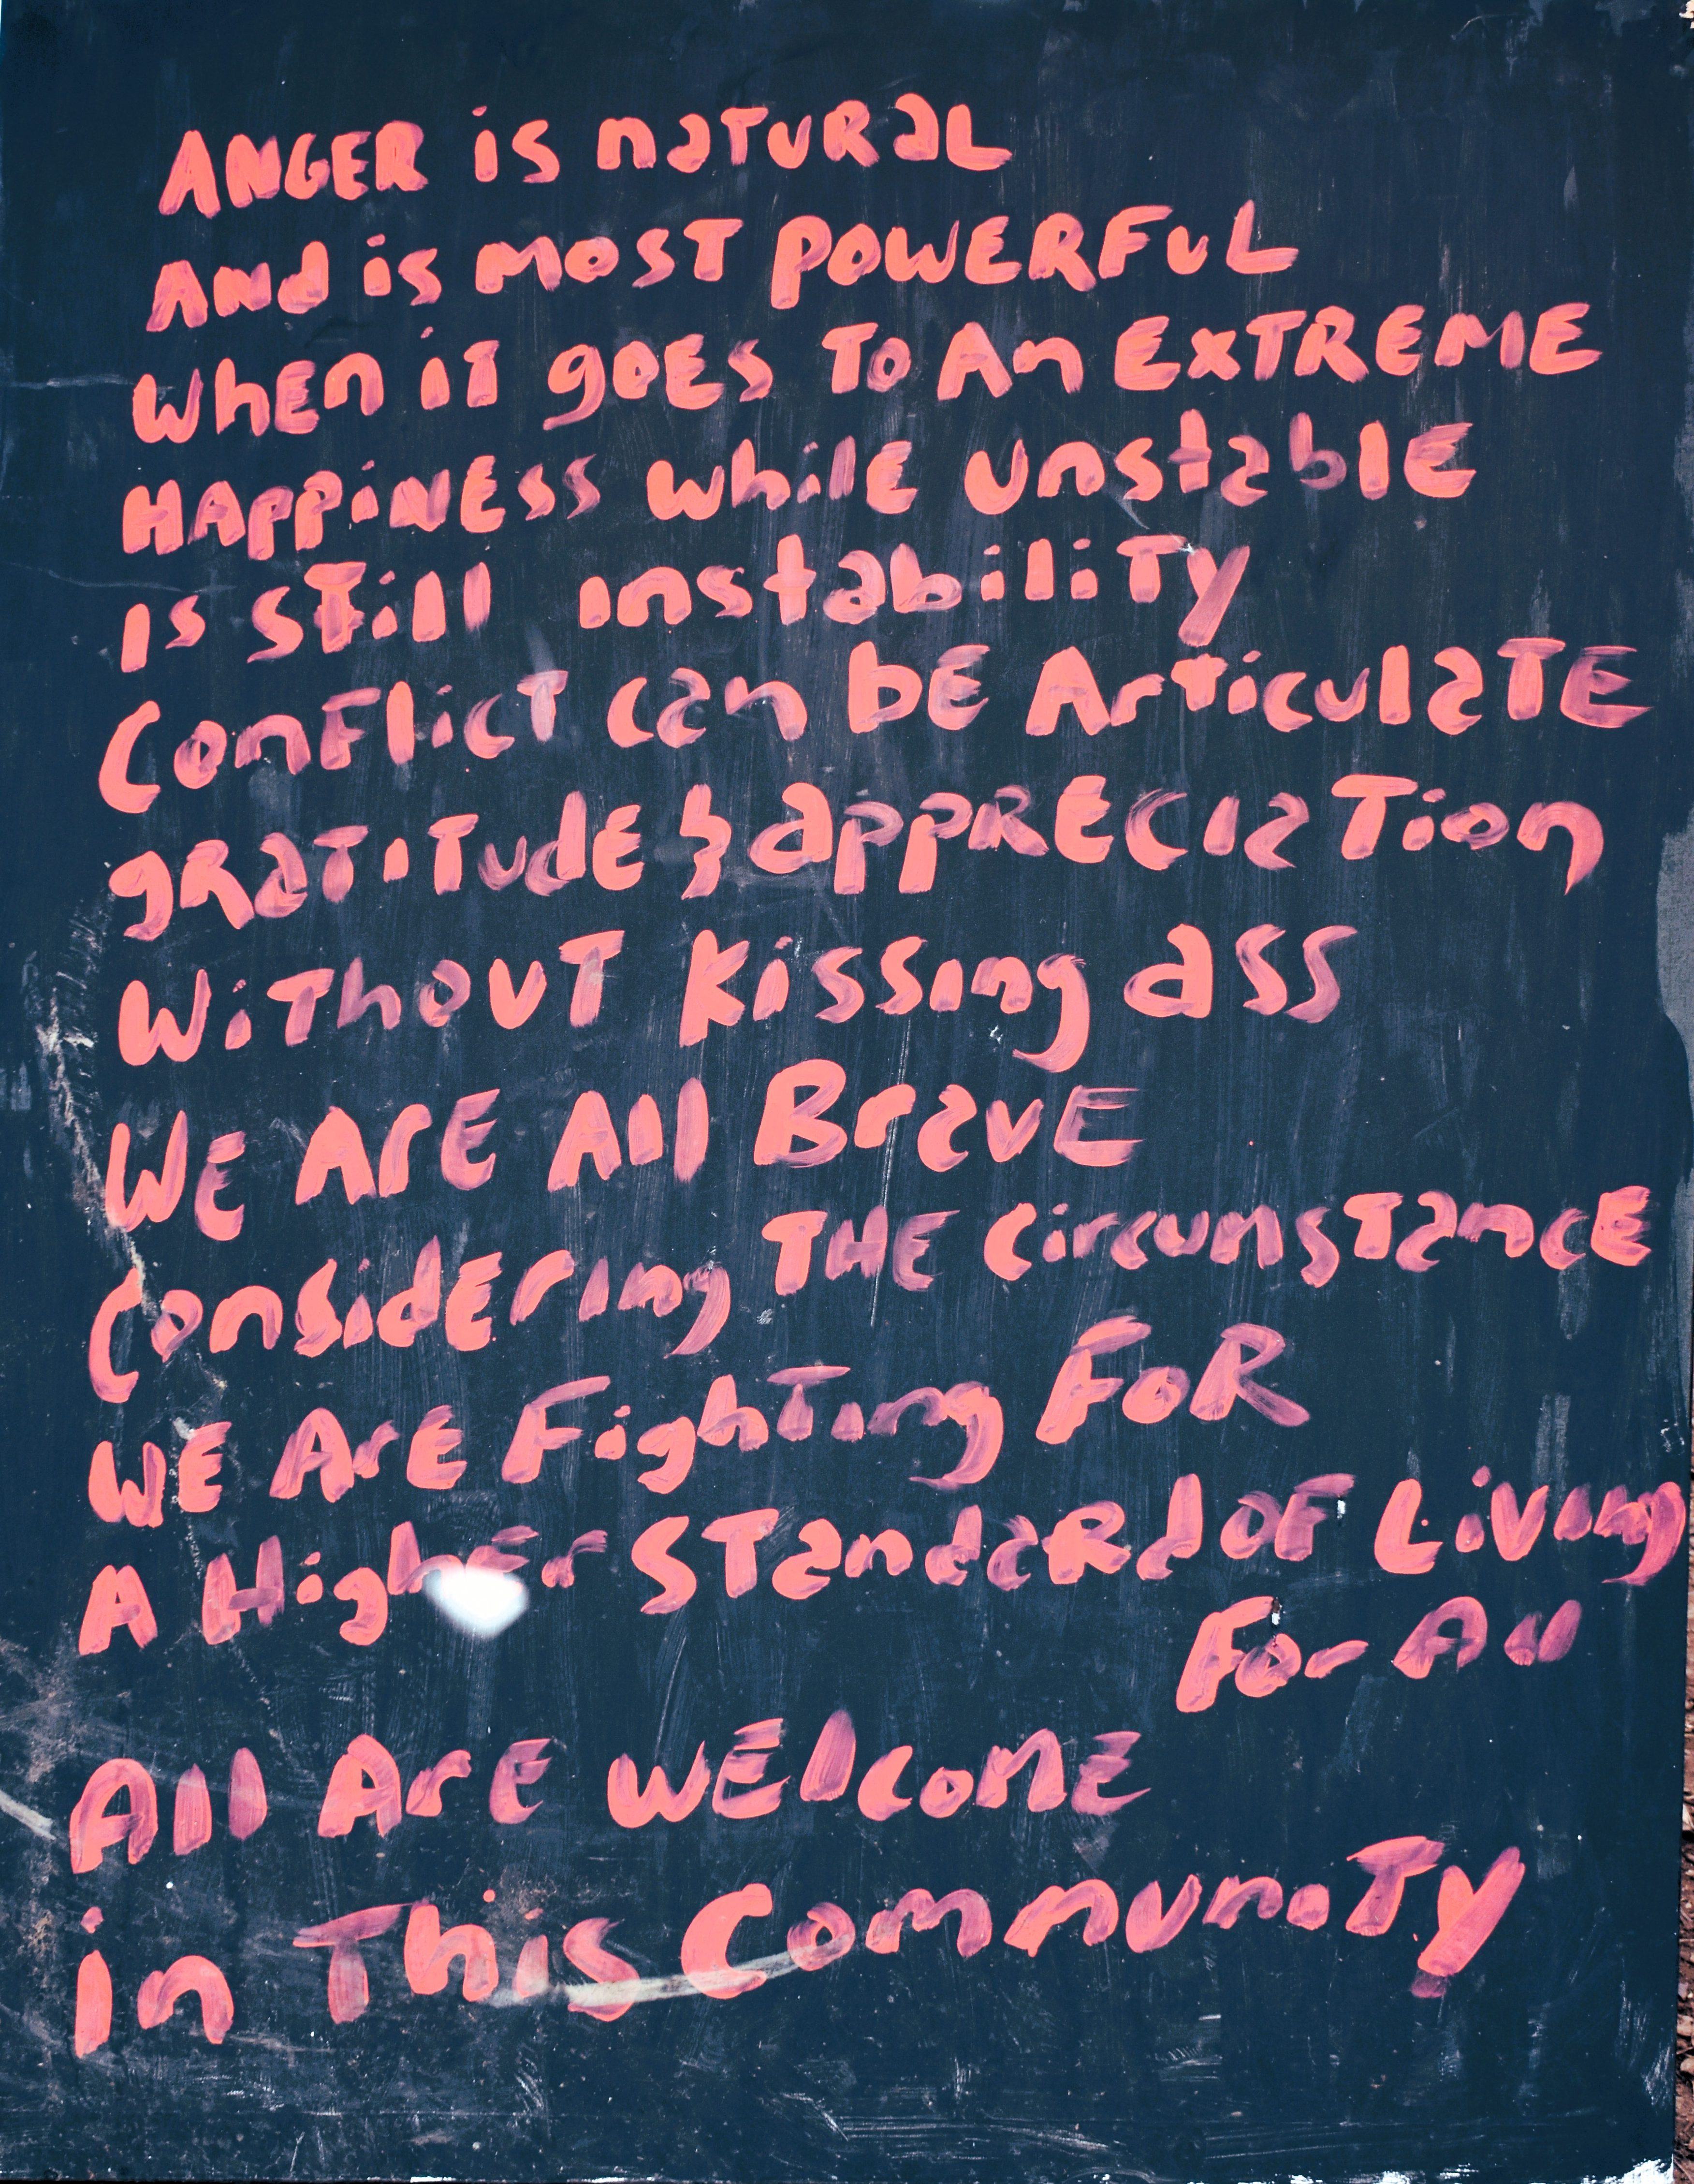 ANGER is naTURaL
And is mosT POWERFuL
WhEn iT gOES To An ExTREME
HAPPiNESS whilE unstablE
Is STill instabiliTy
ConFlicT can bE ArticulaTE
gRaTiTudE & appRECiaTion
WiThouT Kissing ass
WE ArE All BravE
ConsidEring THE CircumsTancE
WE ArE FighTing FoR
A HighEr STandaRd OF Living
For All
All ArE WElcomE
in This CommuniTy